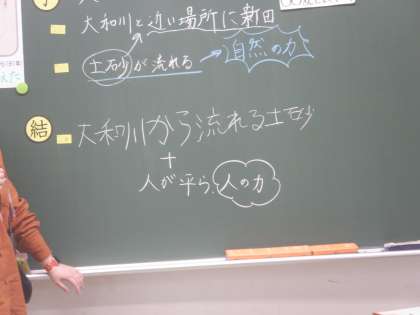 予
大和川と近い場所に新田
土砂が流れる → 自然の力
結
大和川から流れる土砂
+
人が平ら、人の力